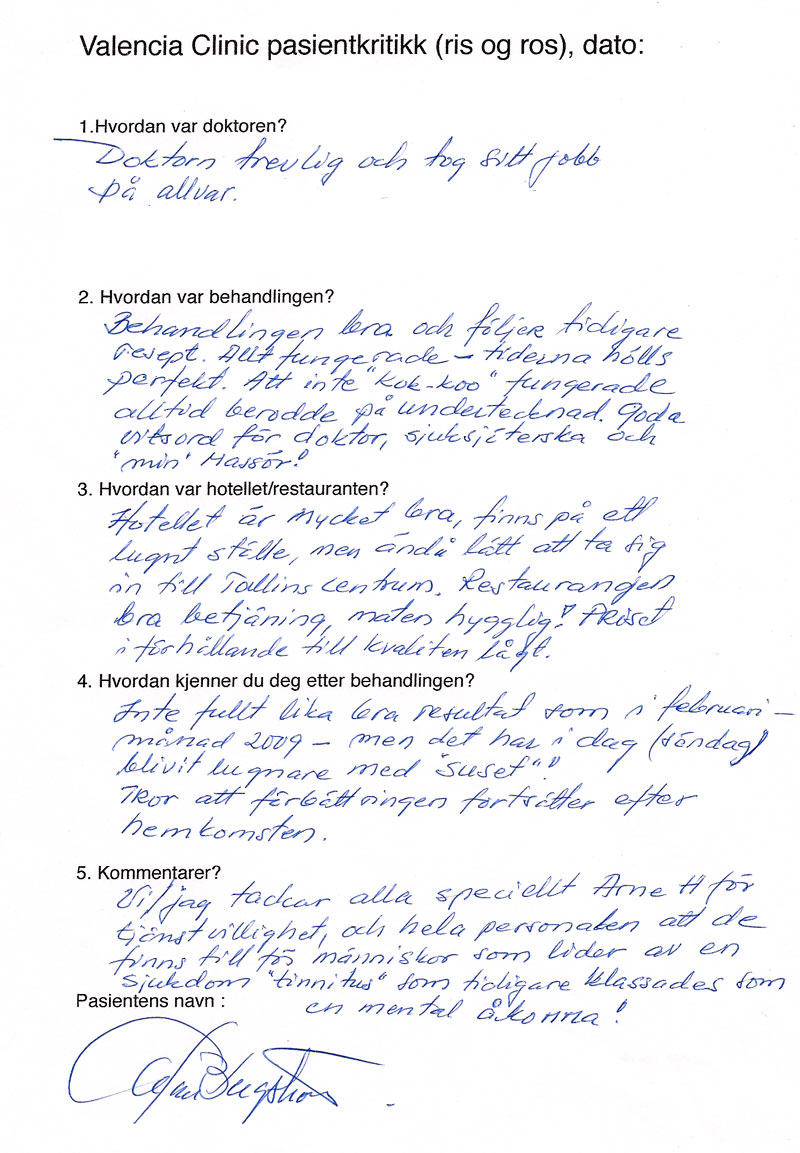 Valencia Clinic pasientkritikk (ris og ros), dato:
1.Hvordan var doktoren?
Doktorn trevlig och tog sitt jobb
på allvar.
2. Hvordan var behandlingen?
Behandlingen bra och följer tidigare
resept. Allt fungerade – tiderna hölls
perfekt. Att inte "kok-koo" fungerade
alltid berodde på undertecknad. Goda
vitsord för doktor, sjuksjöterska och
"min" Massör!
3. Hvordan var hotellet/restauranten?
Hotellet är mycket bra, finns på ett
lugnt ställe, men ändå lätt att ta sig
in till Tallins centrum. Restaurangen
bra betjäning, maten hygglig! Priset
i förhållande till kvaliten lågt.
4. Hvordan kjenner du deg etter behandlingen?
Inte fullt lika bra resultat som i februari–
månad 2009 – men det har i dag (söndag)
blivit lugnare med "suset"!
Tror att förbättringen fortsätter efter
hemkomsten.
5. Kommentarer?
Vi/jag tackar alla speciellt Arne H för
tjänstvillighet, och hela personalen att de
finns till för människor som lider av en
sjukdom "tinnitus" som tidigare klassades som
en mental åkomma!
Pasientens navn :